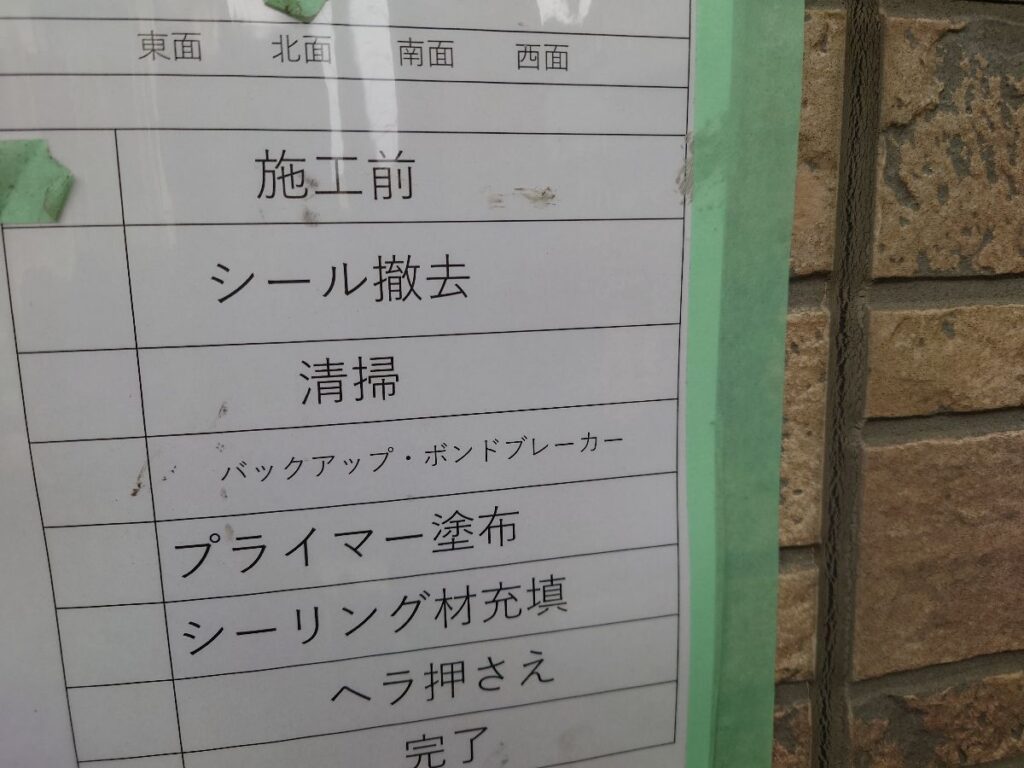 東面 北面 南面 西面
施工前
シール撤去
清掃
バックアップ・ボンドブレーカー
プライマー塗布
シーリング材充填
ヘラ押さえ
完了